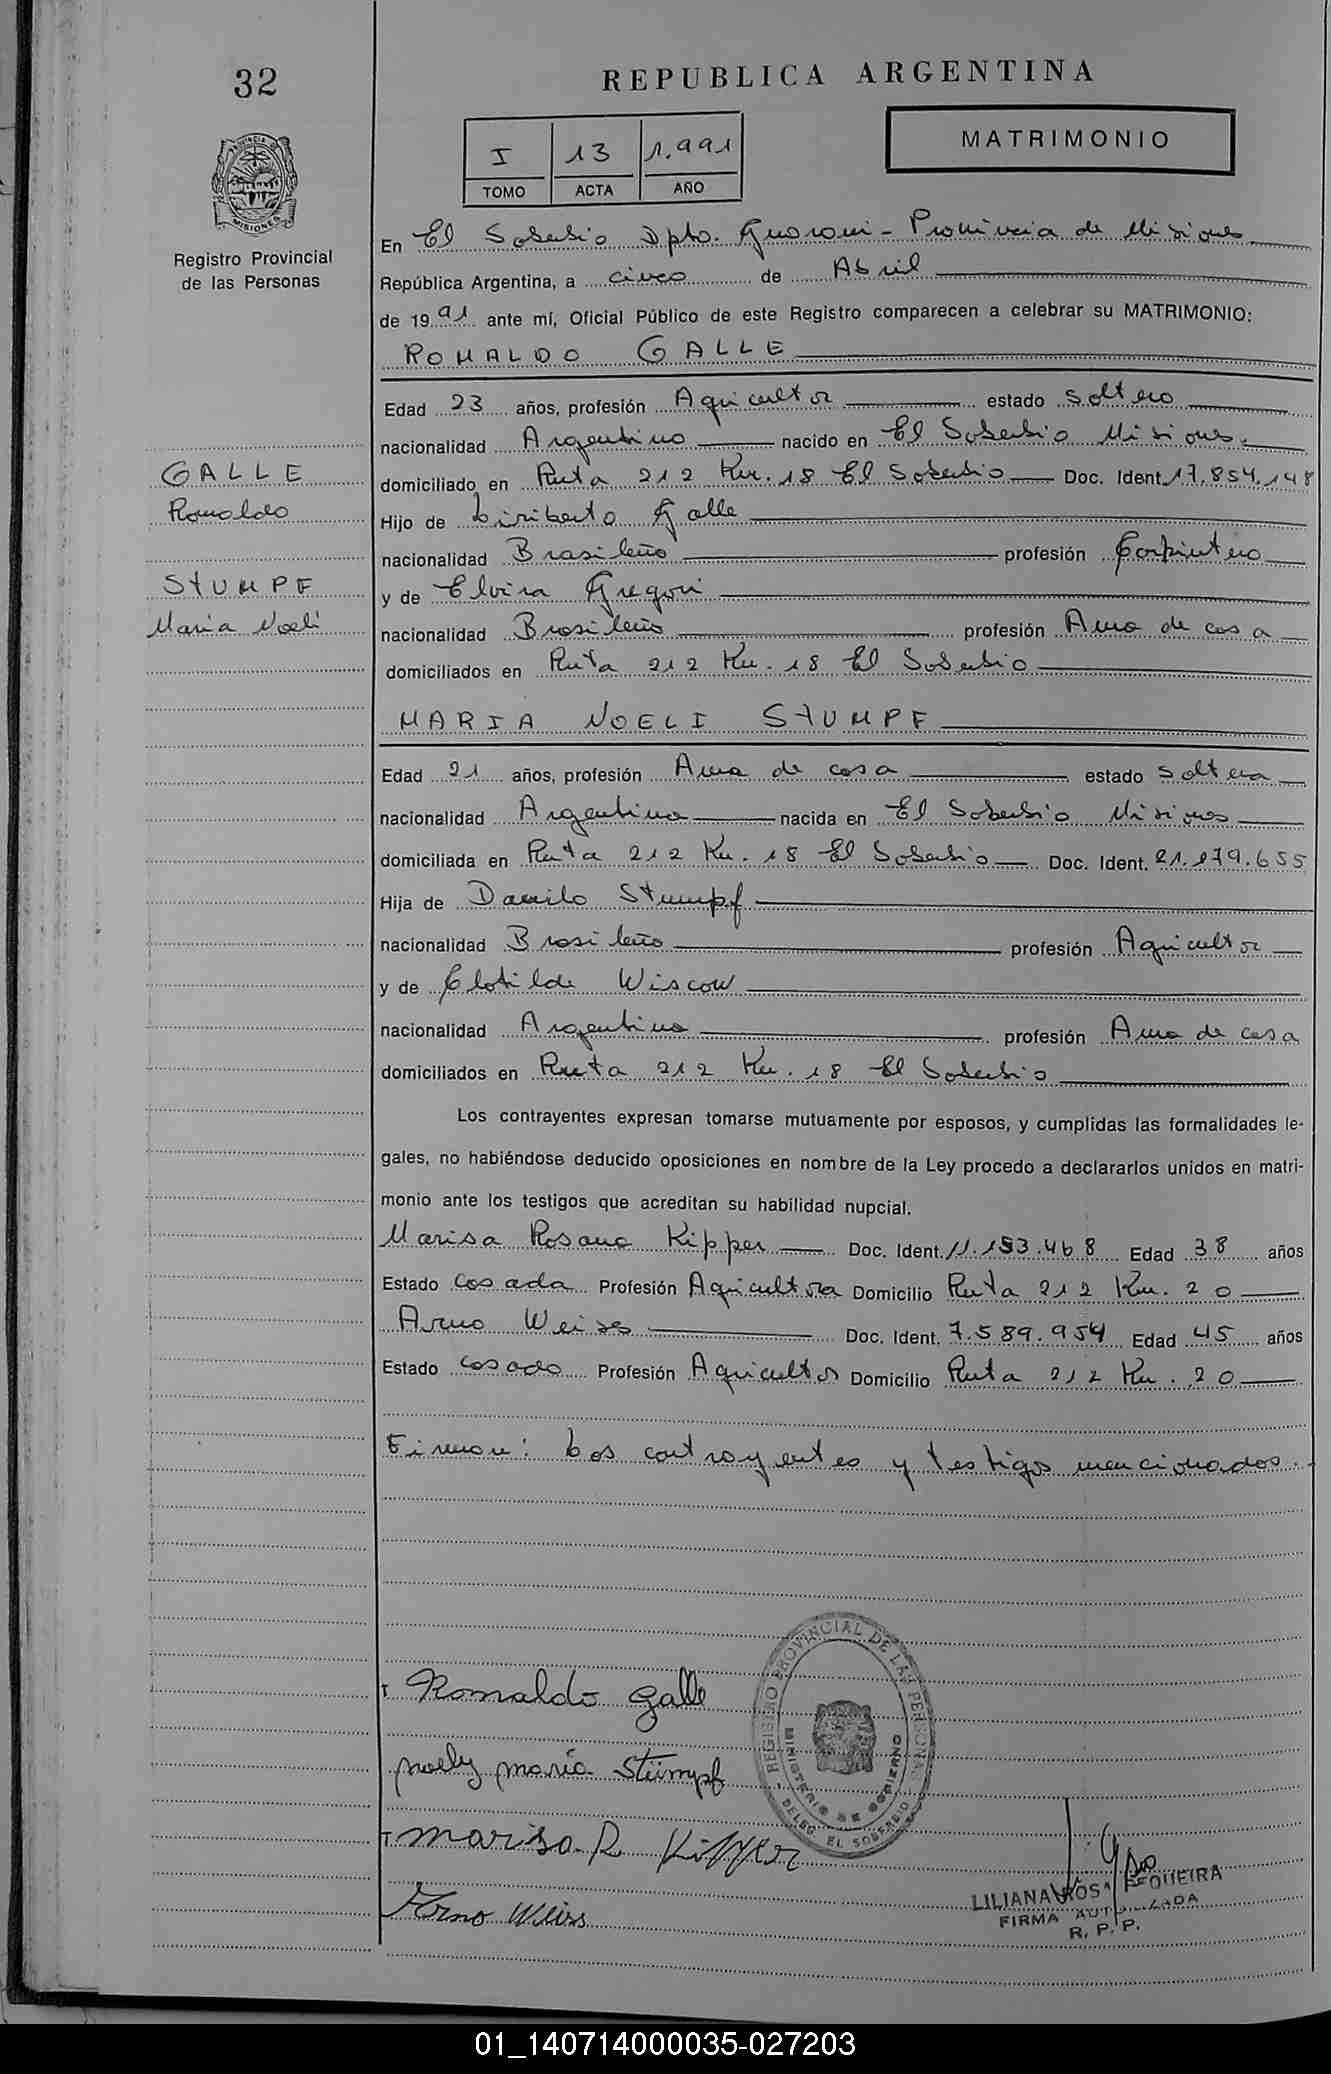 32
REPUBLICA ARGENTINA
MATRIMONIO
I 13 1.991
TOMO ACTA AÑO
PROVINCIA DE
MISIONES
Registro Provincial
de las Personas
En El Soberbio Dpto. Guarani - Provincia de Misiones
República Argentina, a cinco de Abril
de 1991 ante mí, Oficial Público de este Registro comparecen a celebrar su MATRIMONIO:
ROMALDO GALLE
Edad 23 años, profesión Agricultor estado soltero
nacionalidad Argentino nacido en El Soberbio Misiones.
GALLE
domiciliado en Ruta 212 Km. 18 El Soberbio Doc. Ident. 17.854.148
Romaldo
Hijo de Liriberto Galle
nacionalidad Brasileño profesión Carpintero
STUMPF
y de Elvira Gregori
Maria Noeli
nacionalidad Brasileño profesión Ama de casa
domiciliados en Ruta 212 Km. 18 El Soberbio
MARIA NOELI STUMPF
Edad 21 años, profesión Ama de casa estado soltera
nacionalidad Argentina nacida en El Soberbio Misiones
domiciliada en Ruta 212 Km. 18 El Soberbio Doc. Ident. 21.179.655
Hija de Danilo Stumpf
nacionalidad Brasileño profesión Agricultor
y de Clotilde Wiscow
nacionalidad Argentina profesión Ama de casa
domiciliados en Ruta 212 Km. 18 El Soberbio
Los contrayentes expresan tomarse mutuamente por esposos, y cumplidas las formalidades le-
gales, no habiéndose deducido oposiciones en nombre de la Ley procedo a declararlos unidos en matri-
monio ante los testigos que acreditan su habilidad nupcial.
Marisa Rosana Kipper Doc. Ident. 11.153.468 Edad 38 años
Estado Casada Profesión Agricultora Domicilio Ruta 212 Km. 20
Arno Weiss Doc. Ident. 7.589.954 Edad 45 años
Estado Casado Profesión Agricultor Domicilio Ruta 212 Km. 20
Firman: Los contrayentes y testigos mencionados.
REGISTRO PROVINCIAL DE LAS PERSONAS
MINISTERIO DE GOBIERNO
DELEG. EL SOBERBIO
Romaldo Galle
Noely María Stümpf
Marisa R Kipper
Arno Weiss
LILIANA ROSA SEQUEIRA
FIRMA AUTORIZADA
R. P. P.
01_140714000035-027203